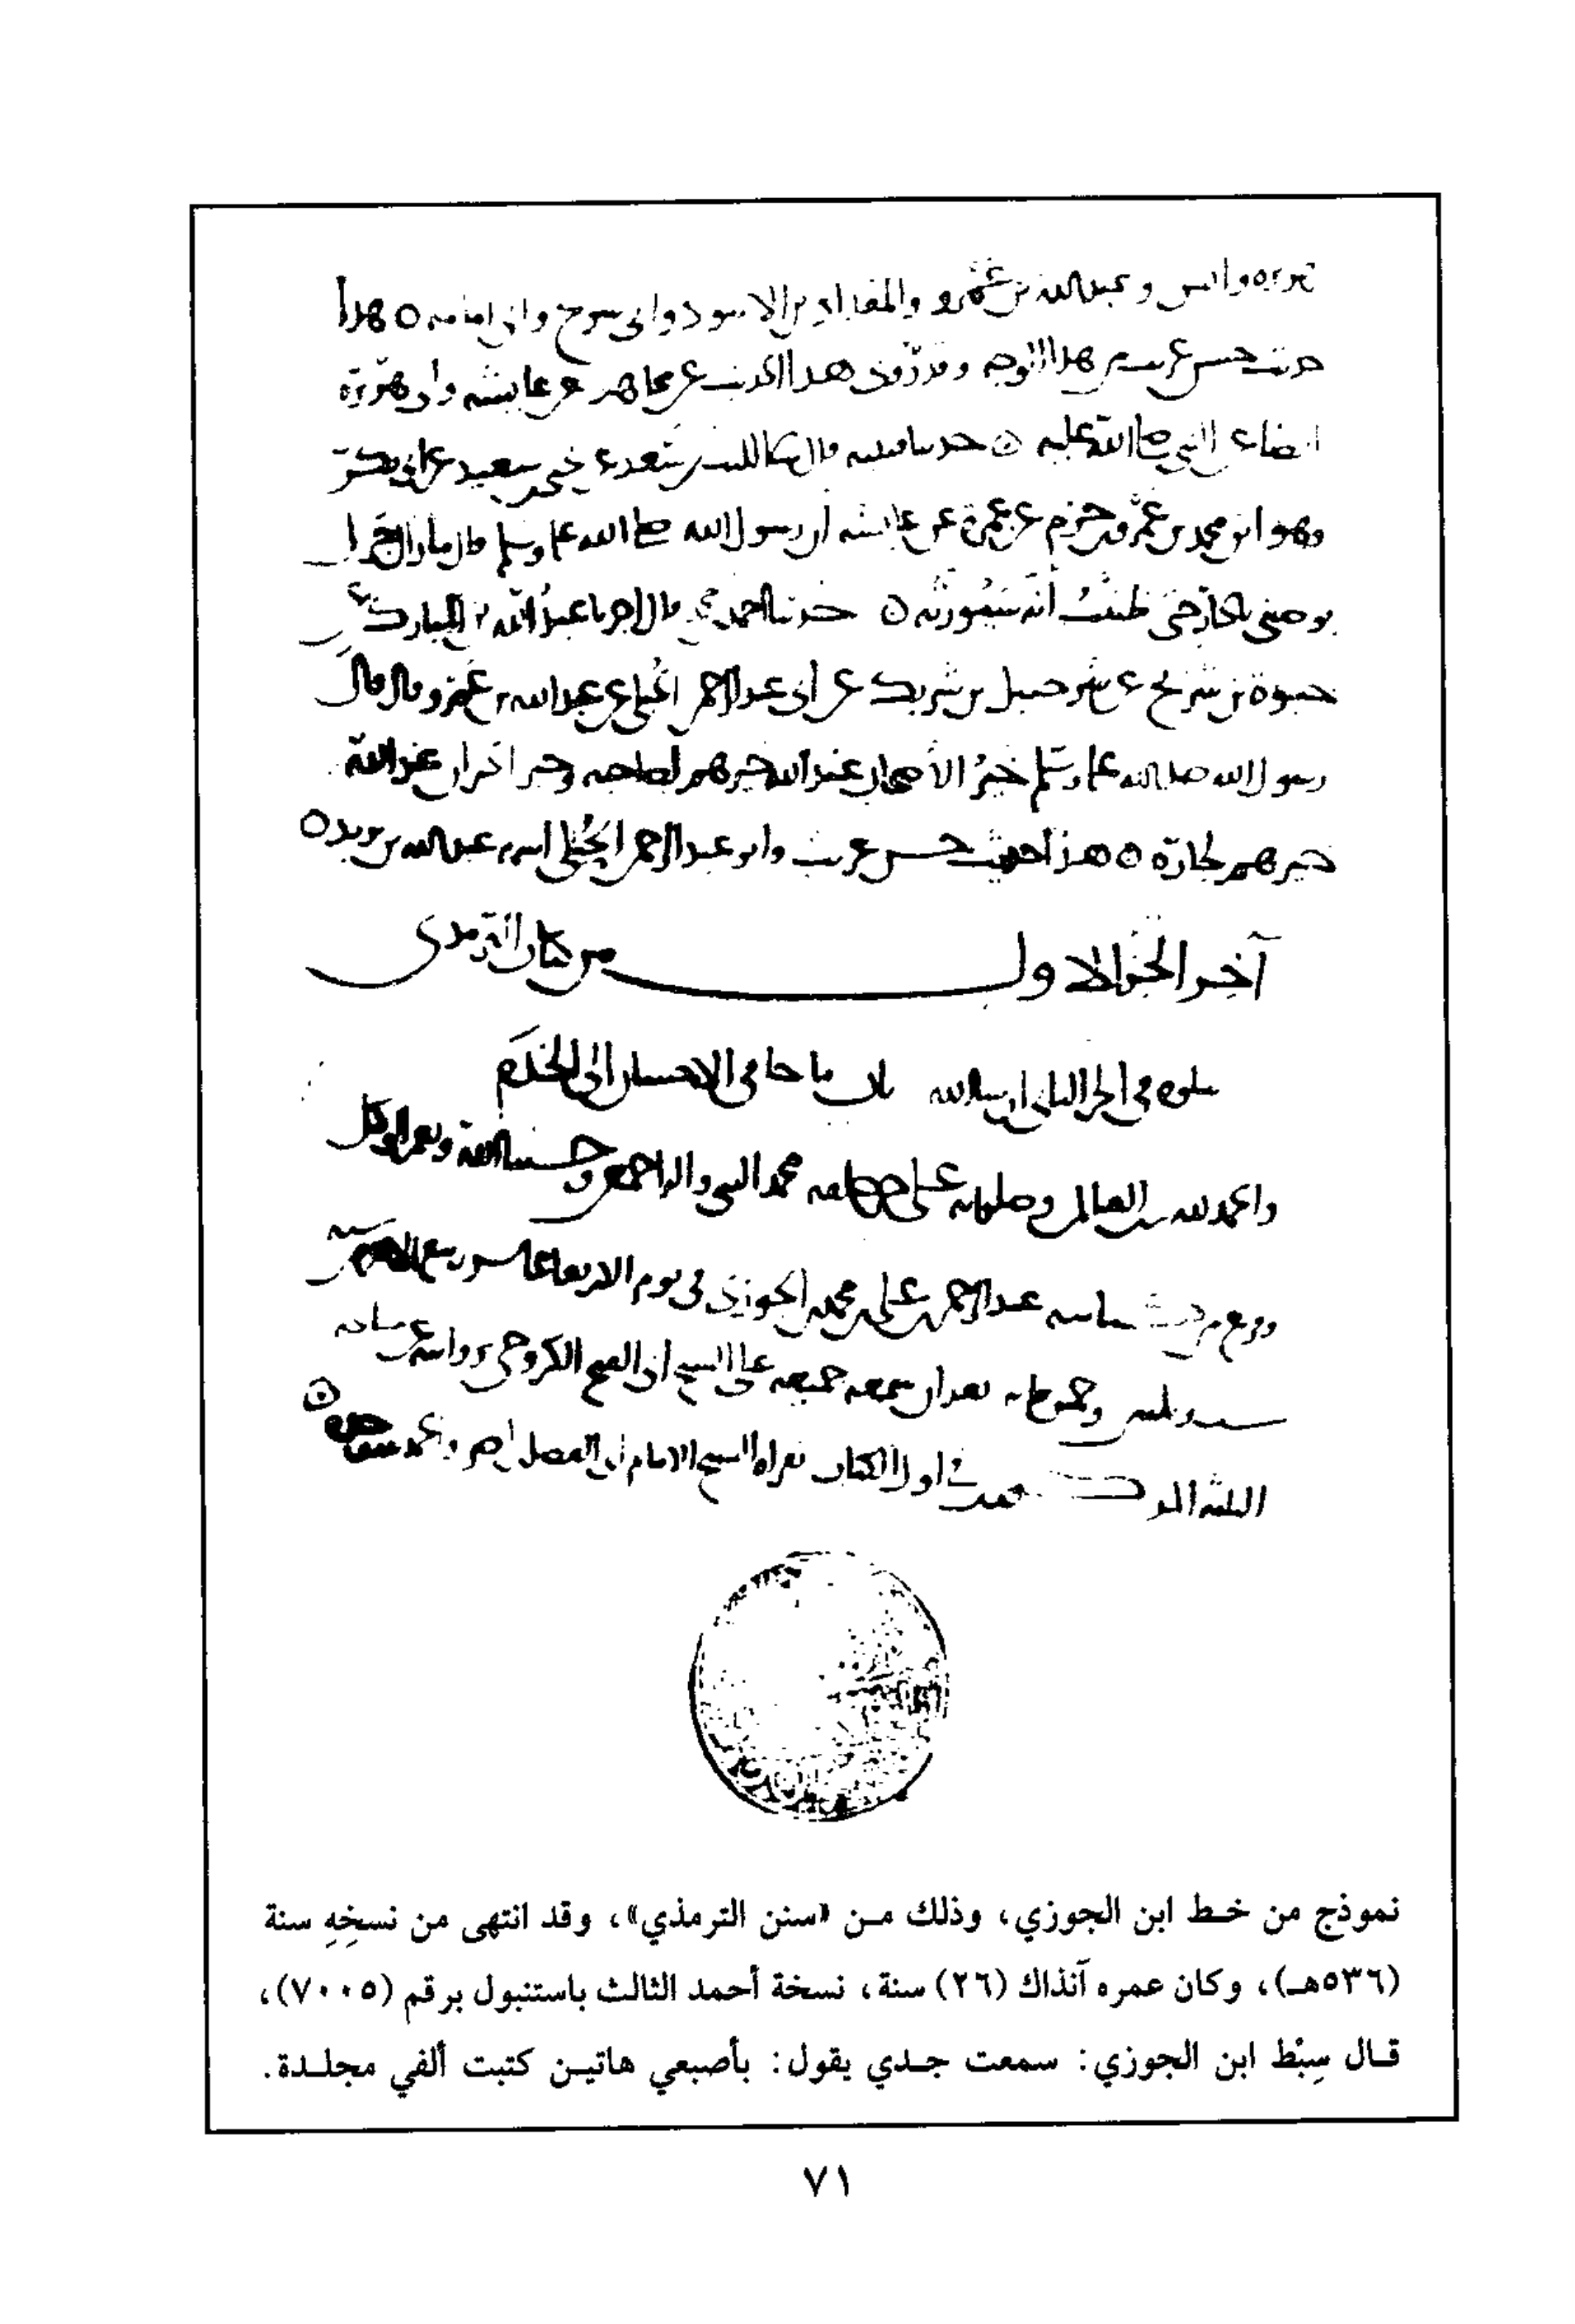 هريره وانس وعبد الله بن عمرو والمقداد بن الاسود وابي شريح وابي امامه ه هذا
حديث حسن غريب من هذا الوجه وقد روي هذا الحديث عن مجاهد عن عايشه وابي هريرة
ايضا عن النبي صلى الله عليه ه حدثنا قتيبه قال الليث بن سعد عن يحيى بن سعيد عن ابي بكر
وهو ابن محمد بن عمرو بن حزم عن عمرة عن عايشه ان رسول الله صلى الله عليه وسلم قال ما زال جبرايل
يوصيني بالجار حتى ظننت أنه سيورثه ه حدثنا احمد بن محمد قال اخبرنا عبد الله بن المبارك عن
حيوة بن شريح عن شرحبيل بن شريك عن ابي عبد الرحمن الحبلي عن عبد الله بن عمرو قال قال
رسول الله صلى الله عليه وسلم خير الأصحاب عند الله خيرهم لصاحبه وخير الجيران عند الله
خيرهم لجاره ه هذا حديث حسن غريب وابو عبد الرحمن الحبلي اسمه عبد الله بن يزيد ه
آخر الجزء الاول من كتاب الترمذي
يتلوه في الجزء الثاني ان شا الله باب ما جا في الاحسان الى الخدم
والحمد لله رب العالمين وصلواته على محمد النبي واله اجمعين وحسبنا الله ونعم الوكيل
عبد الرحمن بن علي بن محمد بن الجوزي في يوم الاربعا
بعد ان سمعه جميعه على الشيخ ابي الفتح الكروخي
اول الكتاب بقراه الشيخ الامام ابي الفضل بن ناصر
نموذج من خط ابن الجوزي، وذلك من «سنن الترمذي»، وقد انتهى من نسخِهِ سنة
(٥٣٦هـ)، وكان عمره آنذاك (٢٦) سنة، نسخة أحمد الثالث باستنبول برقم (٧٠٠٥)،
قال سِبْط ابن الجوزي: سمعت جدي يقول: بأصبعي هاتين كتبت ألفي مجلدة.
٧١